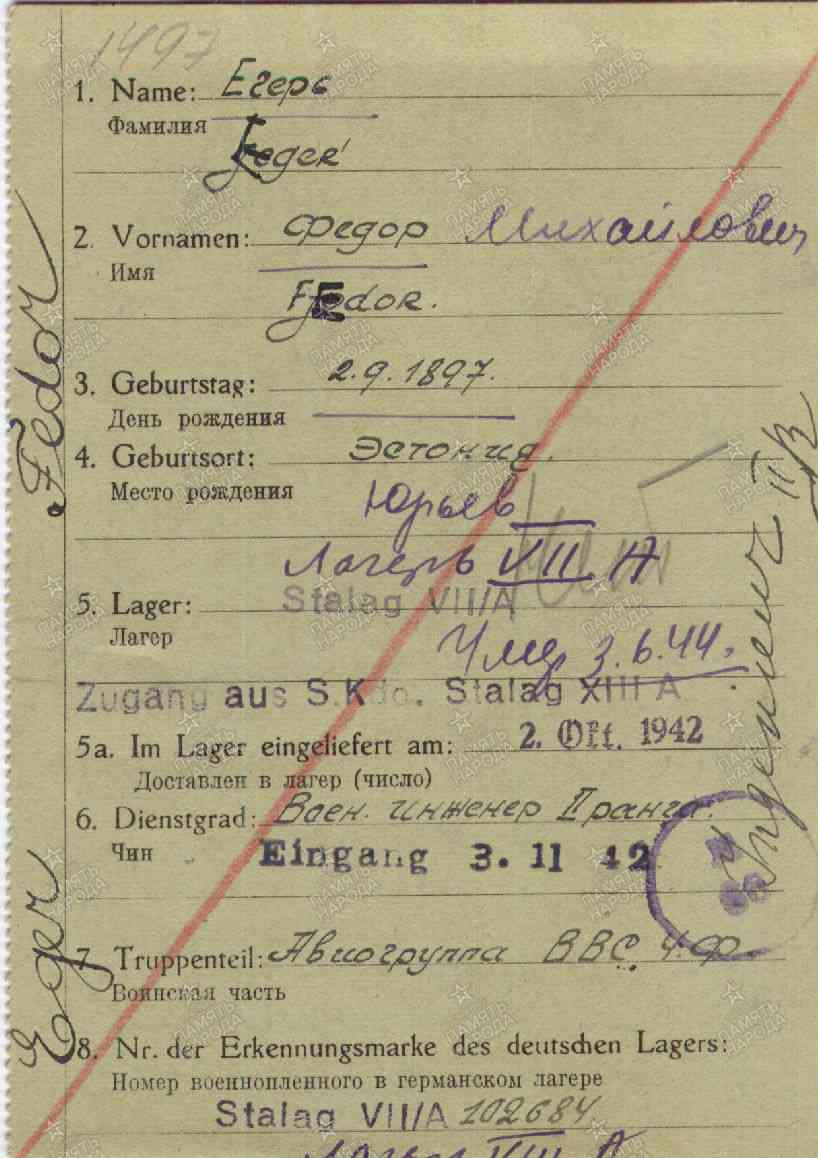 1497
1. Name: Егерь
Фамилия
Jeger
2. Vornamen: Федор Михайлович
Имя
Fedor.
3. Geburtstag: 2.9.1897.
День рождения
4. Geburtsort: Эстония.
Место рождения
Юрьев
Лагерь VII A
5. Lager: Stalag VII/A
Лагер
Умер 3.6.44.
Zugang aus S.Kdo. Stalag XIII A
5a. Im Lager eingeliefert am: 2. Okt. 1942
Доставлен в лагер (число)
6. Dienstgrad: Воен. инженер II ранга.
Чин
Eingang 3. 11 42
7. Truppenteil: Авиогруппа ВВС Ч.Ф.
Воинская часть
8. Nr. der Erkennungsmarke des deutschen Lagers:
Номер военнопленного в германском лагере
Stalag VII/A 102684
Лагерь VII A
Fedor
Eger
ПАМЯТЬ НАРОДА